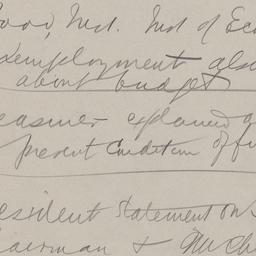 Ind. Ind of Eco
employment also
about budget
easurer explained
present Condition of fi
esident statement on
airman &